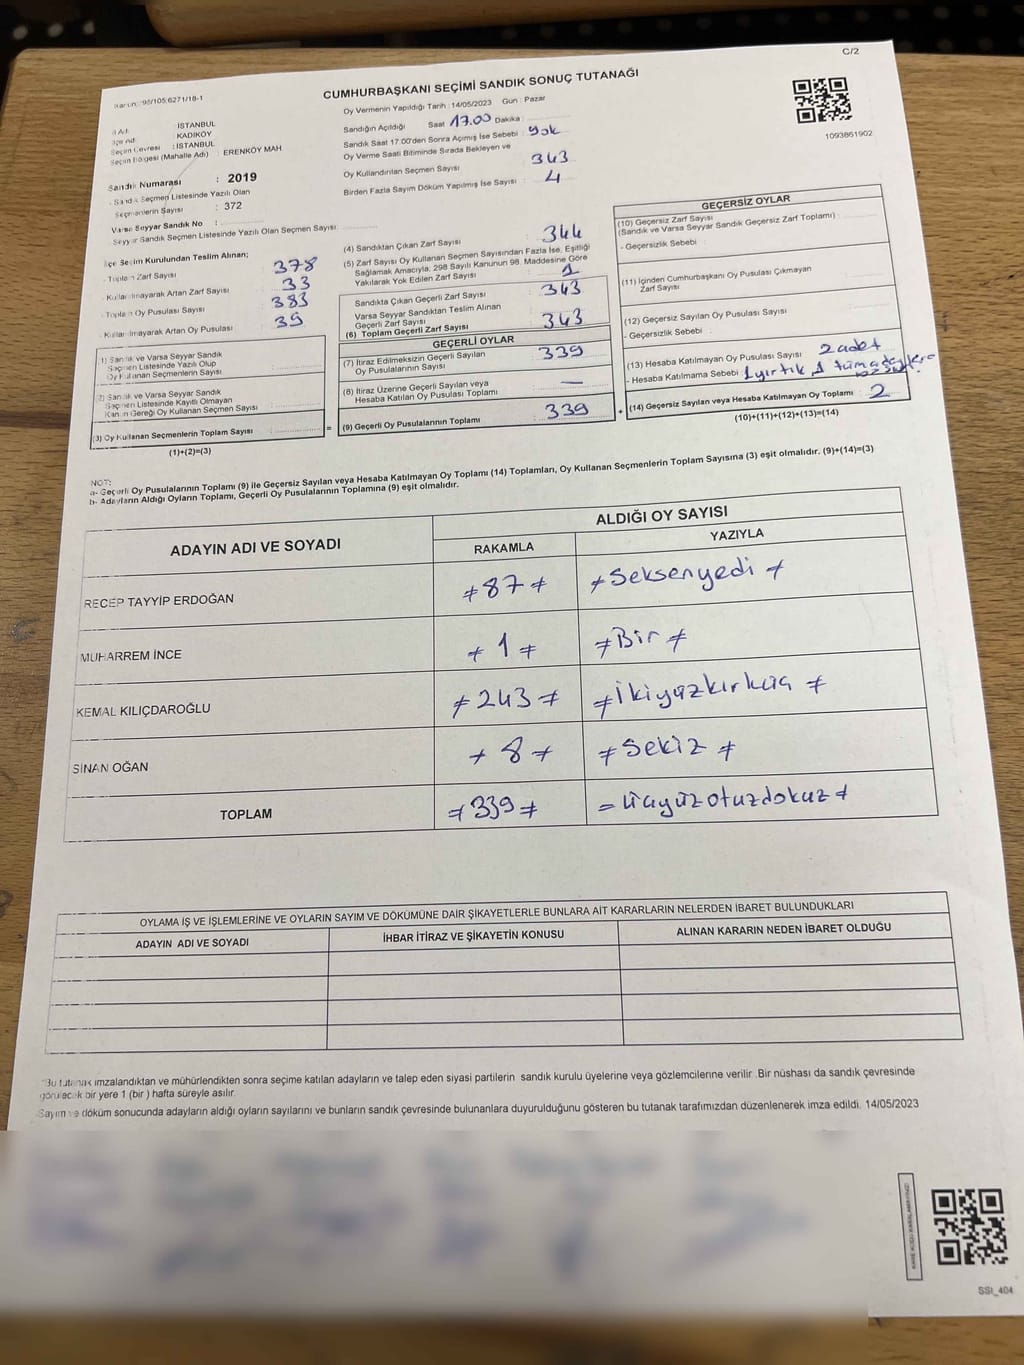 C/2
CUMHURBAŞKANI SEÇİMİ SANDIK SONUÇ TUTANAĞI
Oy Vermenin Yapıldığı Tarih : 14/05/2023 Gün : Pazar
1093861902
İSTANBUL
KADIKÖY
Seçim Çevresi : İSTANBUL
Seçim Bölgesi (Mahalle Adı) : ERENKÖY MAH
Sandık Numarası : 2019
Sandık Seçmen Listesinde Yazılı Olan
Seçmenlerin Sayısı : 372
Varsa Seyyar Sandık No :
Seyyar Sandık Seçmen Listesinde Yazılı Olan Seçmen Sayısı
İlçe Seçim Kurulundan Teslim Alınan;
- Toplam Zarf Sayısı 378
- Kullanılmayarak Artan Zarf Sayısı 33
- Toplam Oy Pusulası Sayısı 383
- Kullanılmayarak Artan Oy Pusulası 39
1) Sandık ve Varsa Seyyar Sandık
Seçmen Listesinde Yazılı Olup
Oy Kullanan Seçmenlerin Sayısı
2) Sandık ve Varsa Seyyar Sandık
Seçmen Listesinde Kayıtlı Olmayan
Kanun Gereği Oy Kullanan Seçmen Sayısı :
(3) Oy Kullanan Seçmenlerin Toplam Sayısı
(1)+(2)=(3)
Sandığın Açıldığı Saat 17.00 Dakika :
Sandık Saat 17.00'den Sonra Açımış İse Sebebi : yok
Oy Verme Saati Bitiminde Sırada Bekleyen ve
Oy Kullandırılan Seçmen Sayısı : 343
Birden Fazla Sayım Döküm Yapılmış İse Sayısı : 4
(4) Sandıktan Çıkan Zarf Sayısı : 344
(5) Zarf Sayısı Oy Kullanan Seçmen Sayısından Fazla İse, Eşitliği
Sağlamak Amacıyla, 298 Sayılı Kanunun 98. Maddesine Göre
Yakılarak Yok Edilen Zarf Sayısı : 1
Sandıkta Çıkan Geçerli Zarf Sayısı : 343
Varsa Seyyar Sandıktan Teslim Alınan
Geçerli Zarf Sayısı
(6) Toplam Geçerli Zarf Sayısı : 343
GEÇERLİ OYLAR
(7) İtiraz Edilmeksizin Geçerli Sayılan
Oy Pusulalarının Sayısı : 339
(8) İtiraz Üzerine Geçerli Sayılan veya
Hesaba Katılan Oy Pusulası Toplamı : —
(9) Geçerli Oy Pusulalarının Toplamı : 339
GEÇERSİZ OYLAR
(10) Geçersiz Zarf Sayısı
(Sandık ve Varsa Seyyar Sandık Geçersiz Zarf Toplamı) :
- Geçersizlik Sebebi :
(11) İçinden Cumhurbaşkanı Oy Pusulası Çıkmayan
Zarf Sayısı
(12) Geçersiz Sayılan Oy Pusulası Sayısı
- Geçersizlik Sebebi :
(13) Hesaba Katılmayan Oy Pusulası Sayısı 2 adet
- Hesaba Katılmama Sebebi : 1 yırtık 1 tüm adaylara
(14) Geçersiz Sayılan veya Hesaba Katılmayan Oy Toplamı : 2
(10)+(11)+(12)+(13)=(14)
NOT:
a- Geçerli Oy Pusulalarının Toplamı (9) ile Geçersiz Sayılan veya Hesaba Katılmayan Oy Toplamı (14) Toplamları, Oy Kullanan Seçmenlerin Toplam Sayısına (3) eşit olmalıdır. (9)+(14)=(3)
b- Adayların Aldığı Oyların Toplamı, Geçerli Oy Pusulalarının Toplamına (9) eşit olmalıdır.
ADAYIN ADI VE SOYADI
ALDIĞI OY SAYISI
RAKAMLA YAZIYLA
RECEP TAYYİP ERDOĞAN ≠ 87 ≠ ≠ Seksenyedi ≠
MUHARREM İNCE ≠ 1 ≠ ≠ Bir ≠
KEMAL KILIÇDAROĞLU ≠ 243 ≠ ≠ İkiyüzkırküç ≠
SİNAN OĞAN ≠ 8 ≠ ≠ Sekiz ≠
TOPLAM ≠ 339 ≠ = üçyüzotuzdokuz ≠
OYLAMA İŞ VE İŞLEMLERİNE VE OYLARIN SAYIM VE DÖKÜMÜNE DAİR ŞİKAYETLERLE BUNLARA AİT KARARLARIN NELERDEN İBARET BULUNDUKLARI
ADAYIN ADI VE SOYADI İHBAR İTİRAZ VE ŞİKAYETİN KONUSU ALINAN KARARIN NEDEN İBARET OLDUĞU
*Bu tutanak imzalandıktan ve mühürlendikten sonra seçime katılan adayların ve talep eden siyasi partilerin sandık kurulu üyelerine veya gözlemcilerine verilir .Bir nüshası da sandık çevresinde
görülecek bir yere 1 (bir ) hafta süreyle asılır.
Sayım ve döküm sonucunda adayların aldığı oyların sayılarını ve bunların sandık çevresinde bulunanlara duyurulduğunu gösteren bu tutanak tarafımızdan düzenlenerek imza edildi. 14/05/2023
SSI_404